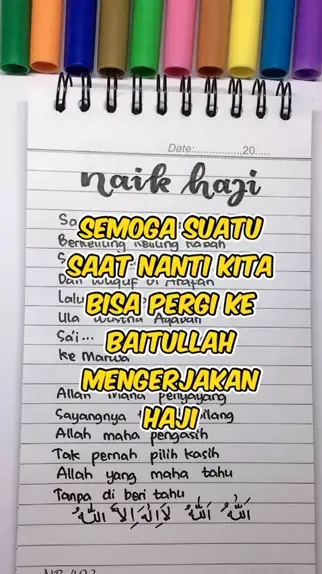 Date:................20.....
naik haji
Sa
SEMOGA SUATU
Berkeliling keliling Kabah
SAAT NANTI KITA
Dan wuquf di Arafah
BISA PERGI KE
Lalu
Ula Wustha Aqabah
BAITULLAH
Sa'i...
ke Marwa
MENGERJAKAN
Allah maha penyayang
HAJI
Sayangnya bilang
Allah maha pengasih
Tak pernah pilih kasih
Allah yang maha tahu
Tanpa di beri tahu
اَللّٰهُ اَللّٰهُ لَا اِلٰهَ اِلَّا اللّٰهُ